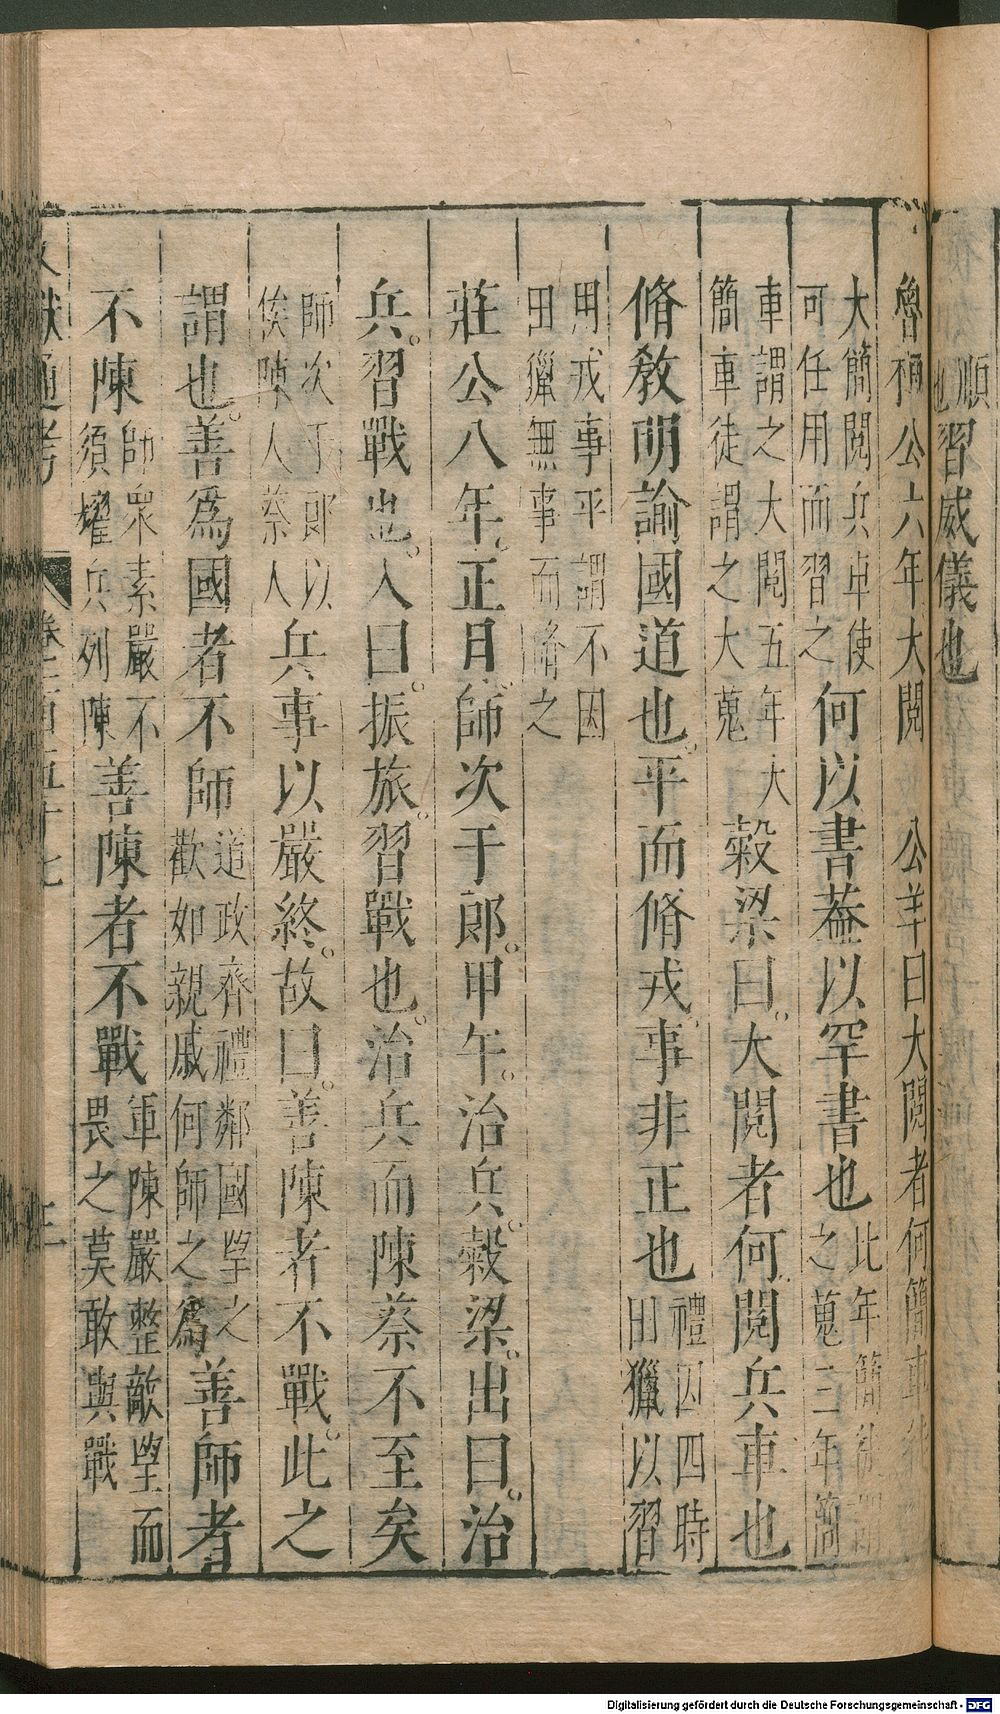 順也習威儀也
魯桓公六年大閱　公羊曰大閱者何簡車
大簡閱兵車使可任用而習之何以書葢以罕書也此年簡徒謂之蒐三年簡
車謂之大閱五年大簡車徒謂之大蒐穀梁曰。大閱者何閱兵車也
脩敎明諭國道也。平而脩戎事非正也禮因四時田獵以習
用戎事平謂不因田獵無事而脩之
莊公八年。正月。師次于郎。甲午。治兵。穀梁。出曰。治
兵。習戰也。入曰。振旅。習戰也。治兵而陳蔡不至矣
師次于郎以俟陳人蔡人兵事以嚴終。故曰。善陳者不戰。此之
謂也。善爲國者不師道政齊禮鄰國望之歡如親戚何師之爲善師者
不陳師眾素嚴不須耀兵列陳善陳者不戰軍陳嚴整敵望而畏之莫敢與戰
文獻通考　卷一百五十七　三
Digitalisierung gefördert durch die Deutsche Forschungsgemeinschaft - DFG